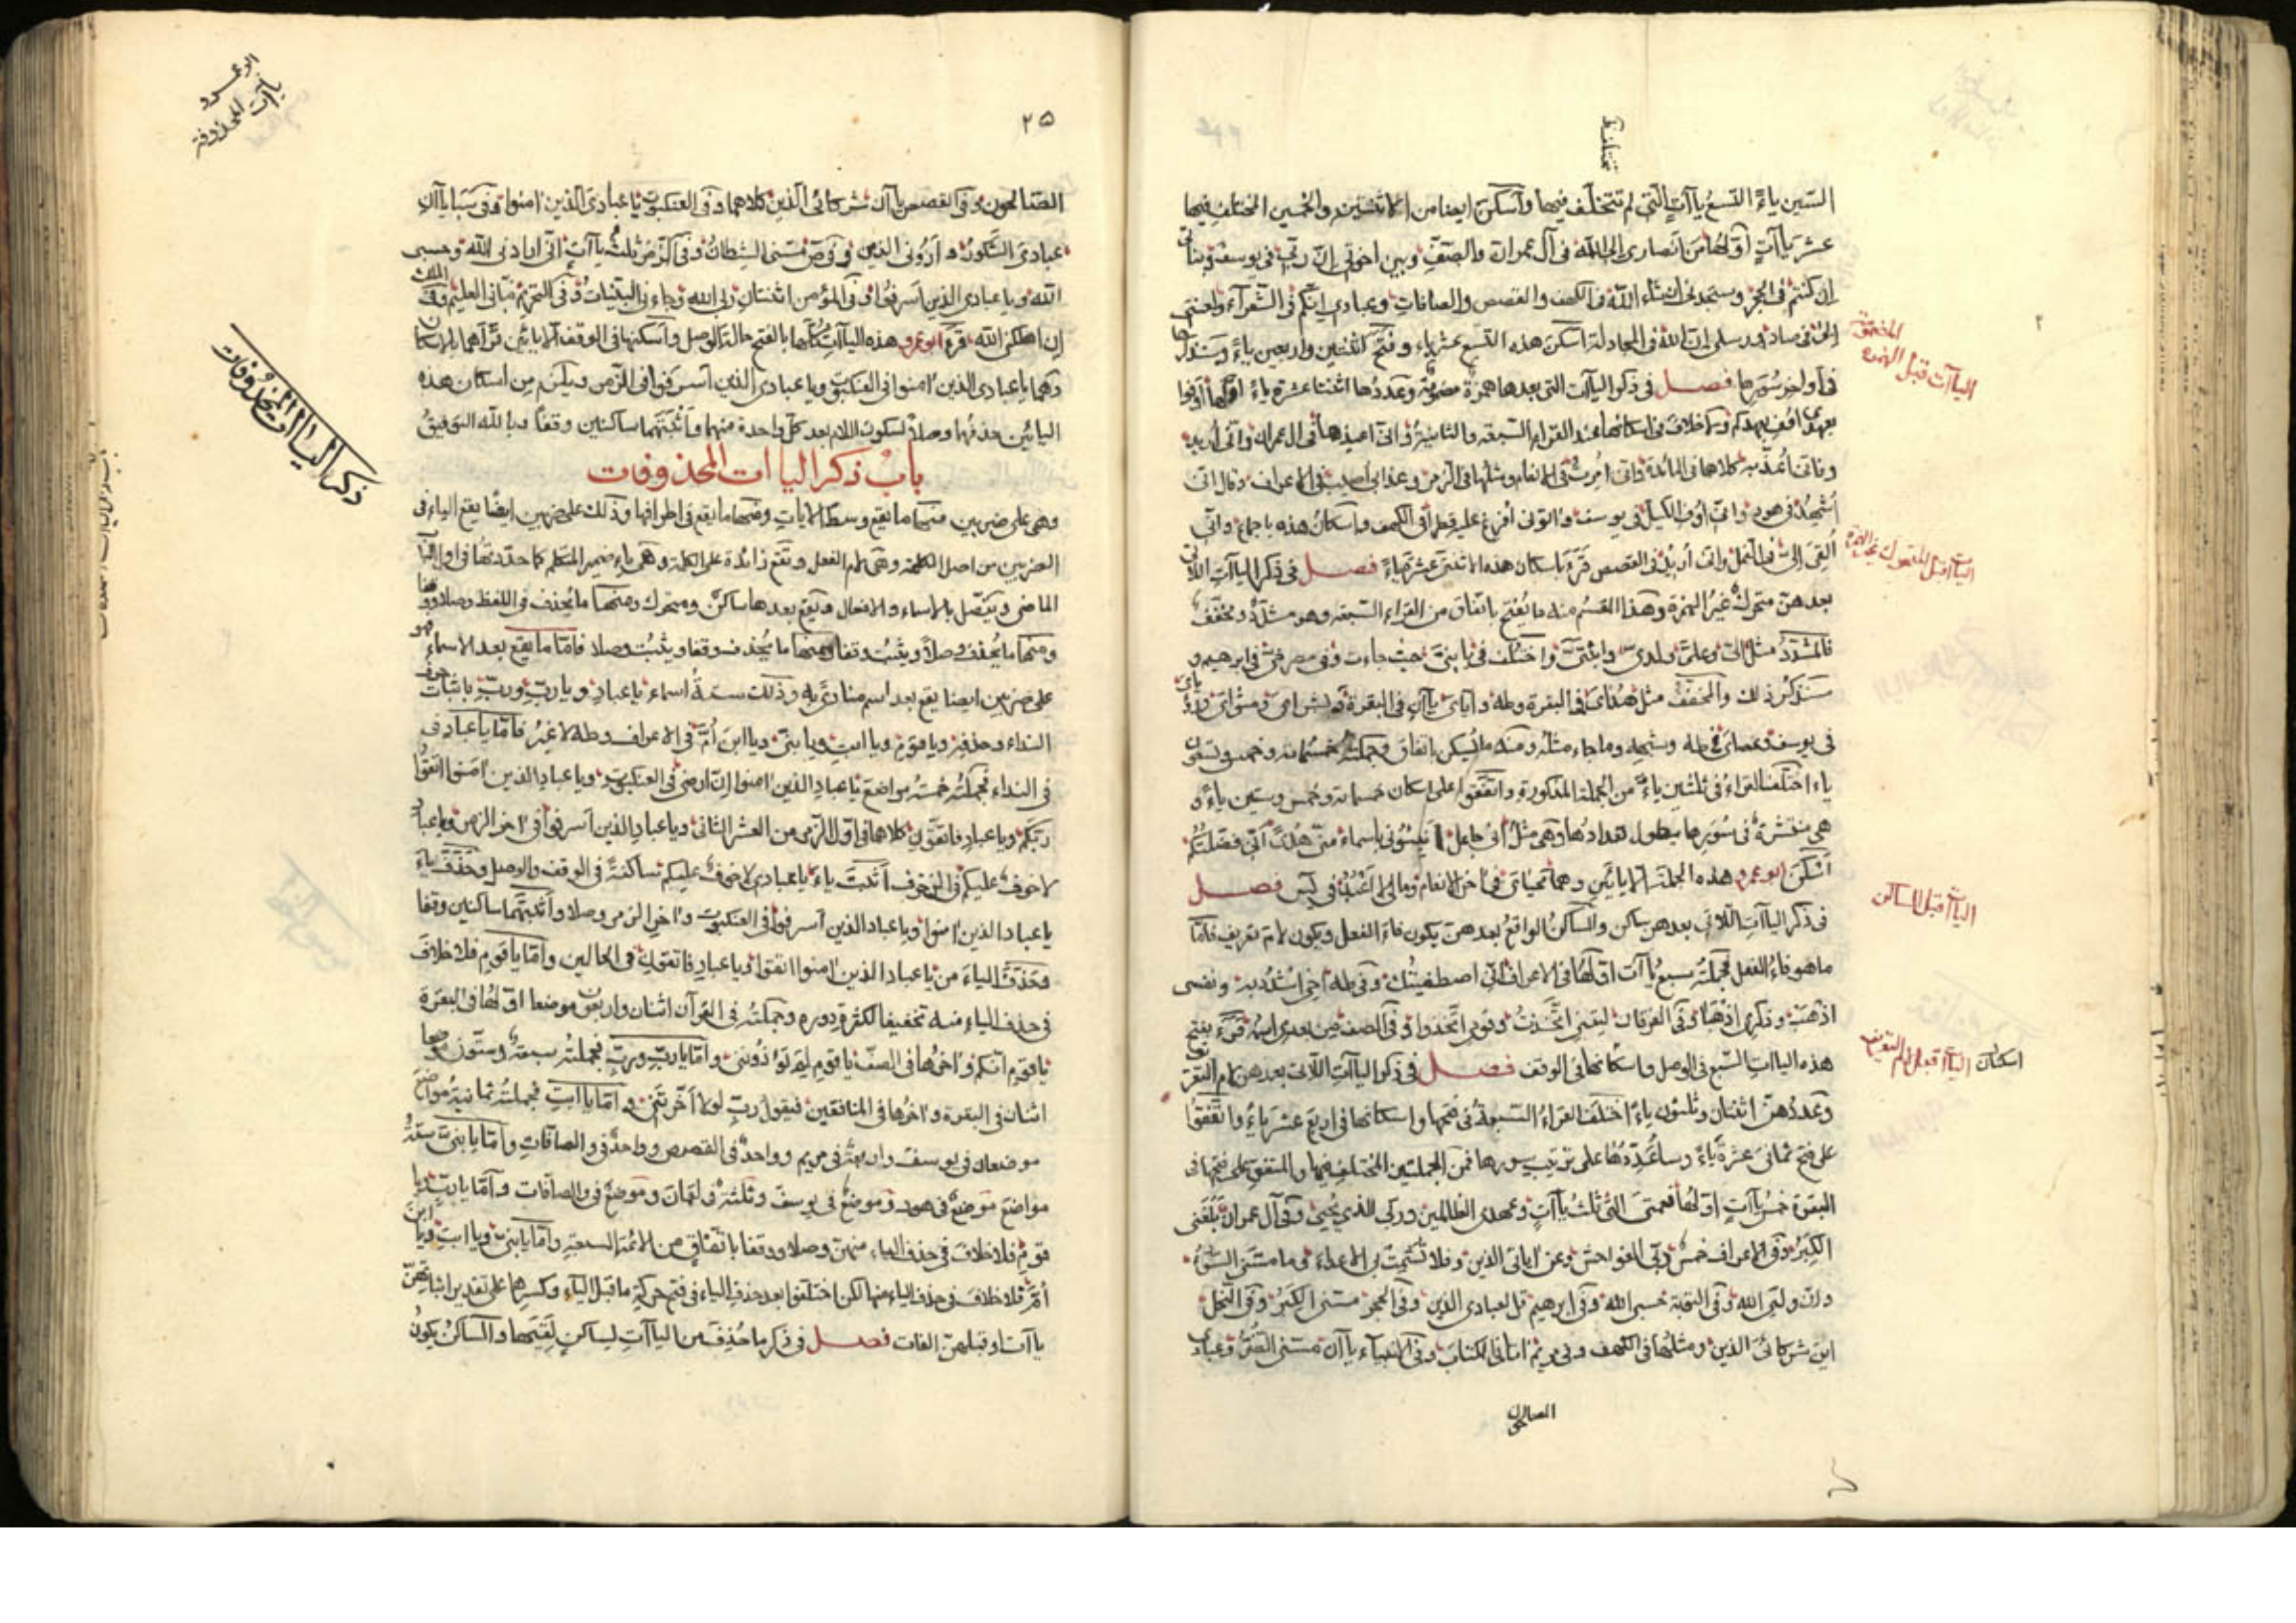 الستين ياءً التسع ياآت التي لم تختلف فيها وأسكن ايضا من الاثنتين والخمسين المختلف فيها
عشر ياآت أولها من انصارى الى الله في آل عمران والصف وبين اخوتي ان ربي في يوسف وبناتي
ان كنتم في الحجر وستجدني ان شاء الله في الكهف والقصص والصافات وعبادي انكم في الشعراء ولعنتي
الى في صاد ورسلي ان الله في المجادلة اسكن هذه التسع عشر ياء وفتح اثنتين واربعين ياءً وستذكرها
في أواخر سورها فصل في ذكر الياآت التي بعدها همزة مضمومة وعددها اثنتا عشرة ياءً اولها اوفوا
بعهدي اوف بعهدكم ولا خلاف في اسكانها عند القراء السبعة والثانية واني اعيذها في ال عمران واني أريد
وفاني أعذبه كلاهما في المائدة واني امرت في الانعام ومثلها في الزمر وعذابي أصيب في الاعراف وقال اني
أشهد في هود واني اوف الكيل في يوسف واتوني أفرغ عليه قطرا في الكهف واسكان هذه باجماع واني
ألقي إلي في النمل واني أريد في القصص قرء باسكان هذه الاثنتي عشرة ياءً فصل في ذكر الياآت اللاتي
بعدهن متحرك غير الهمزة وهذا القسم منه ما يفتح باتفاق من القراء السبعة وهو مشدد ومخفف
فالمشدد مثل الي وعلي ولدي وابنتي واختلف في يا بني حيث جاءت وفي مصرخي في ابرهيم و
سنذكر ذلك والمخفف مثل هداي في البقرة وطه واياي ياآن في البقرة وبشراي ومثواي ورؤياي
في يوسف وعصاي في طه وشبهه وما جاء مثله ومنه ما يسكن باتفاق وجملته خمسمائة وخمس وتسعون
ياء اختلف القراء في ثلثين ياءً من الجملة المذكورة واتفقوا على اسكان خمسمائة وخمس وستين ياءً و
هي منتشرة في سورها يطول تعدادها وهي مثل اني جاعل انبئوني باسماء مني هدى اني فضلتكم
أسكن ابو عمرو هذه الجملة الا يائين وهما محياي في اخر الانعام ومالي لا اعبد في يس فصل
في ذكر الياآت اللاتي بعدهن ساكن والساكن الواقع بعدهن يكون فاء الفعل ويكون لام تعريف فاما
ما هو فاء الفعل فجملته سبع ياآت اولها في الاعراف اني اصطفيتك وفي طه اخي اشدد به ونفسي
اذهب وذكري اذهبا وفي الفرقان ليتني اتخذت وقومي اتخذوا وفي الصف من بعدي اسمه قرء بفتح
هذه الياات السبع في الوصل واسكانها في الوقف فصل في ذكر الياآت اللاتي بعدهن لام التعريف
وعددهن اثنتان وثلثون ياءً اختلف القراء السبعة في فتحها واسكانها في اربع عشر ياءً واتفقوا
على فتح ثماني عشرة ياءً وساعددها على ترتيب سورها فمن الجملتين المختلف فيها والمتفق على فتحها في
البقرة خمس ياآت اولها نعمتي التي ثلث ياآت وعهدي الظالمين وربي الذي يحيي وفي آل عمران بلغني
الكبر وفي الاعراف خمس ربي الفواحش وعن اياتي الذين وفلا تشمت بي الاعداء وما مسني السوء
وان وليي الله وفي التوبة حسبي الله وفي ابرهيم قل لعبادي الذين وفي الحجر مسني الكبر وفي النحل
اين شركائي الذين ومثلها في الكهف وفي مريم اتاني الكتاب وفي الانبياء ياآن مسني الضر وعبادي
الصالحون
المختلفة
الياآت قبل الهمزة
الياآت قبل المتحرك غير الهمزة
الياآت قبل الساكن
اسكان الياآت قبل لام التعريف
٢٥
الصالحون وفي القصص ياآن شركائي الذين كلاهما وفي العنكبوت يا عبادي الذين امنوا وفي سبا ياآن
عبادي الشكور و أروني الذين وفي ص مسني الشيطان وفي الزمر ثلث ياآت اني ارادني الله وحسبي
الله ويا عبادي الذين اسرفوا وفي المؤمن اثنتان ربي الله وجاءني البينات وفي التحريم نبأني العليم وفي الملك
إن اهلكني الله قرء ابو عمرو هذه الياآت كلها بالفتح حالة الوصل وأسكنها في الوقف الا يائين قرأهما بالاسكان
وهما يا عبادي الذين امنوا في العنكبوت ويا عبادي الذين اسرفوا في الزمر ويلزم من اسكان هذه
اليائين حذفهما وصلا لسكون اللام بعد كل واحدة منهما واثبتهما ساكنين وقفا وبالله التوفيق
باب ذكر الياات المحذوفات
وهي على ضربين منها ما يقع وسط الايات ومنها ما يقع في اطرافها وذلك على ضربين ايضا يقع الياء في
الضربين من اصل الكلمة وهي لام الفعل وتقع زائدة على الكلمة وهي ياء ضمير المتكلم كما حددتها في اول الباب
الماضي ويتصل بالاسماء والافعال ويقع بعدها ساكن ومتحرك ومنها ما يحذف في اللفظ وصلا ووقفا
ومنها ما يحذف وصلاً ويثبت وقفا ومنها ما يحذف وقفا ويثبت وصلا فاما ما يقع بعد الاسماء فهو
على ضربين ايضا يقع بعد اسم منادى به وذلك ستة اسماء يا عباد ويا رب ورب باثبات حرف
النداء وحذفه ويا قوم ويا ابت ويا بني ويا ابن أم في الاعراف وطه لا غير فاما يا عباد في
في النداء فجملته خمسة مواضع يا عباد الذين امنوا ان ارضي في العنكبوت ويا عباد الذين امنوا اتقوا
ربكم ويا عباد فاتقون كلاهما في اول الزمر من العشر الثاني ويا عباد الذين اسرفوا في اخر الزمر ويا عباد
لا خوف عليكم في الزخرف أثبت ياء يا عبادي لا خوف عليكم ساكنة في الوقف والوصل وحذف ياء
يا عباد الذين امنوا ويا عباد الذين اسرفوا في العنكبوت واخر الزمر وصلا وأثبتهما ساكنين وقفا
وحذف الياء من يا عباد الذين امنوا اتقوا ويا عباد فاتقون في الحالين وأما يا قوم فلا خلاف
في حذف الياء منه تخفيفا لكثرة دوره وجملته في القرآن اثنان واربعون موضعا اولها في البقرة
يا قوم انكم واخرها في الصف يا قوم لم تؤذونني وأما يا رب ورب فجملته سبعة وستون موضعا
اثنان في البقرة واخرها في المنافقين فيقول رب لولا أخرتني و اما يا ابت فجملته ثمانية مواضع
موضعان في يوسف واربعة في مريم وواحد في القصص وواحد في والصافات وأما يا بني ستة
مواضع موضع في هود وموضع في يوسف وثلثة في لقمان وموضع في والصافات وأما يا رب ويا
قوم فلا خلاف في حذف الياء منهن وصلا ووقفا باتفاق من الائمة السبعة وأما يا بني ويا ابت ويا ابن
أم فلا خلاف في حذف الياء منها لكن اختلفوا بعد حذف الياء في فتح حركة ما قبل الياء وكسرها على تقدير اثباتهن
ياآت او قبلهن الفات فصل في ذكر ما حذف من الياآت لساكن لقيها والساكن يكون
ذكر الياآت المحذوفات